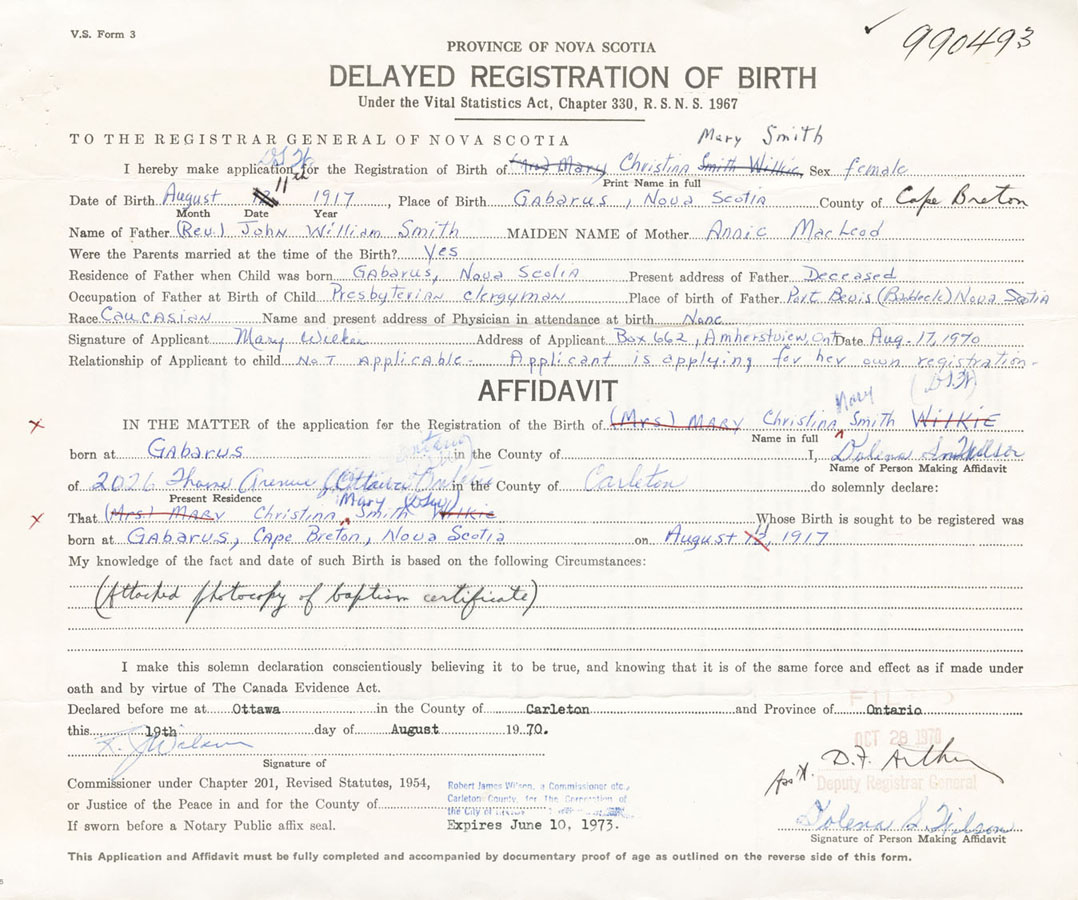 V.S. Form 3
990493
PROVINCE OF NOVA SCOTIA
DELAYED REGISTRATION OF BIRTH
Under the Vital Statistics Act, Chapter 330, R. S. N. S. 1967
TO THE REGISTRAR GENERAL OF NOVA SCOTIA
Mary Smith
I hereby make application for the Registration of Birth of (Mrs) Mary Christina Smith Wilkie Sex female
Print Name in full
Date of Birth August 12 11th 1917, Place of Birth Gabarus, Nova Scotia County of Cape Breton
Month Date Year
Name of Father (Rev.) John William Smith MAIDEN NAME of Mother Annie MacLeod
Were the Parents married at the time of the Birth? Yes
Residence of Father when Child was born Gabarus, Nova Scotia Present address of Father Deceased
Occupation of Father at Birth of Child Presbyterian Clergyman Place of birth of Father Port Bevis (Baddeck) Nova Scotia
Race Caucasian Name and present address of Physician in attendance at birth None
Signature of Applicant Mary Wilkie Address of Applicant Box 662, Amherstview, Ont Date Aug. 17, 1970
Relationship of Applicant to child Not applicable - Applicant is applying for her own registration -
AFFIDAVIT
(DSW)
Mary
x IN THE MATTER of the application for the Registration of the Birth of (Mrs) Mary Christina Smith Wilkie
Name in full
born at Gabarus in the County of I, Dolena S. Wilson
Name of Person Making Affidavit
of 2026 Thorne Avenue, Ottawa in the County of Carleton do solemnly declare:
Present Residence
Mary (DSW)
x That (Mrs) Mary Christina Smith Wilkie Whose Birth is sought to be registered was
born at Gabarus, Cape Breton, Nova Scotia on August 12 11, 1917
My knowledge of the fact and date of such Birth is based on the following Circumstances:
(Attached photocopy of baptism certificate)
I make this solemn declaration conscientiously believing it to be true, and knowing that it is of the same force and effect as if made under
oath and by virtue of The Canada Evidence Act.
Declared before me at Ottawa in the County of Carleton and Province of Ontario
this 19th day of August 1970.
OCT 28 1970
R. J. Wilson
Signature of
D. F. Arthur
Commissioner under Chapter 201, Revised Statutes, 1954,
Deputy Registrar General
Robert James Wilson, a Commissioner etc.,
or Justice of the Peace in and for the County of
Carleton County, for The Corporation of
the City of
If sworn before a Notary Public affix seal.
Expires June 10, 1973.
Dolena S. Wilson
Signature of Person Making Affidavit
This Application and Affidavit must be fully completed and accompanied by documentary proof of age as outlined on the reverse side of this form.